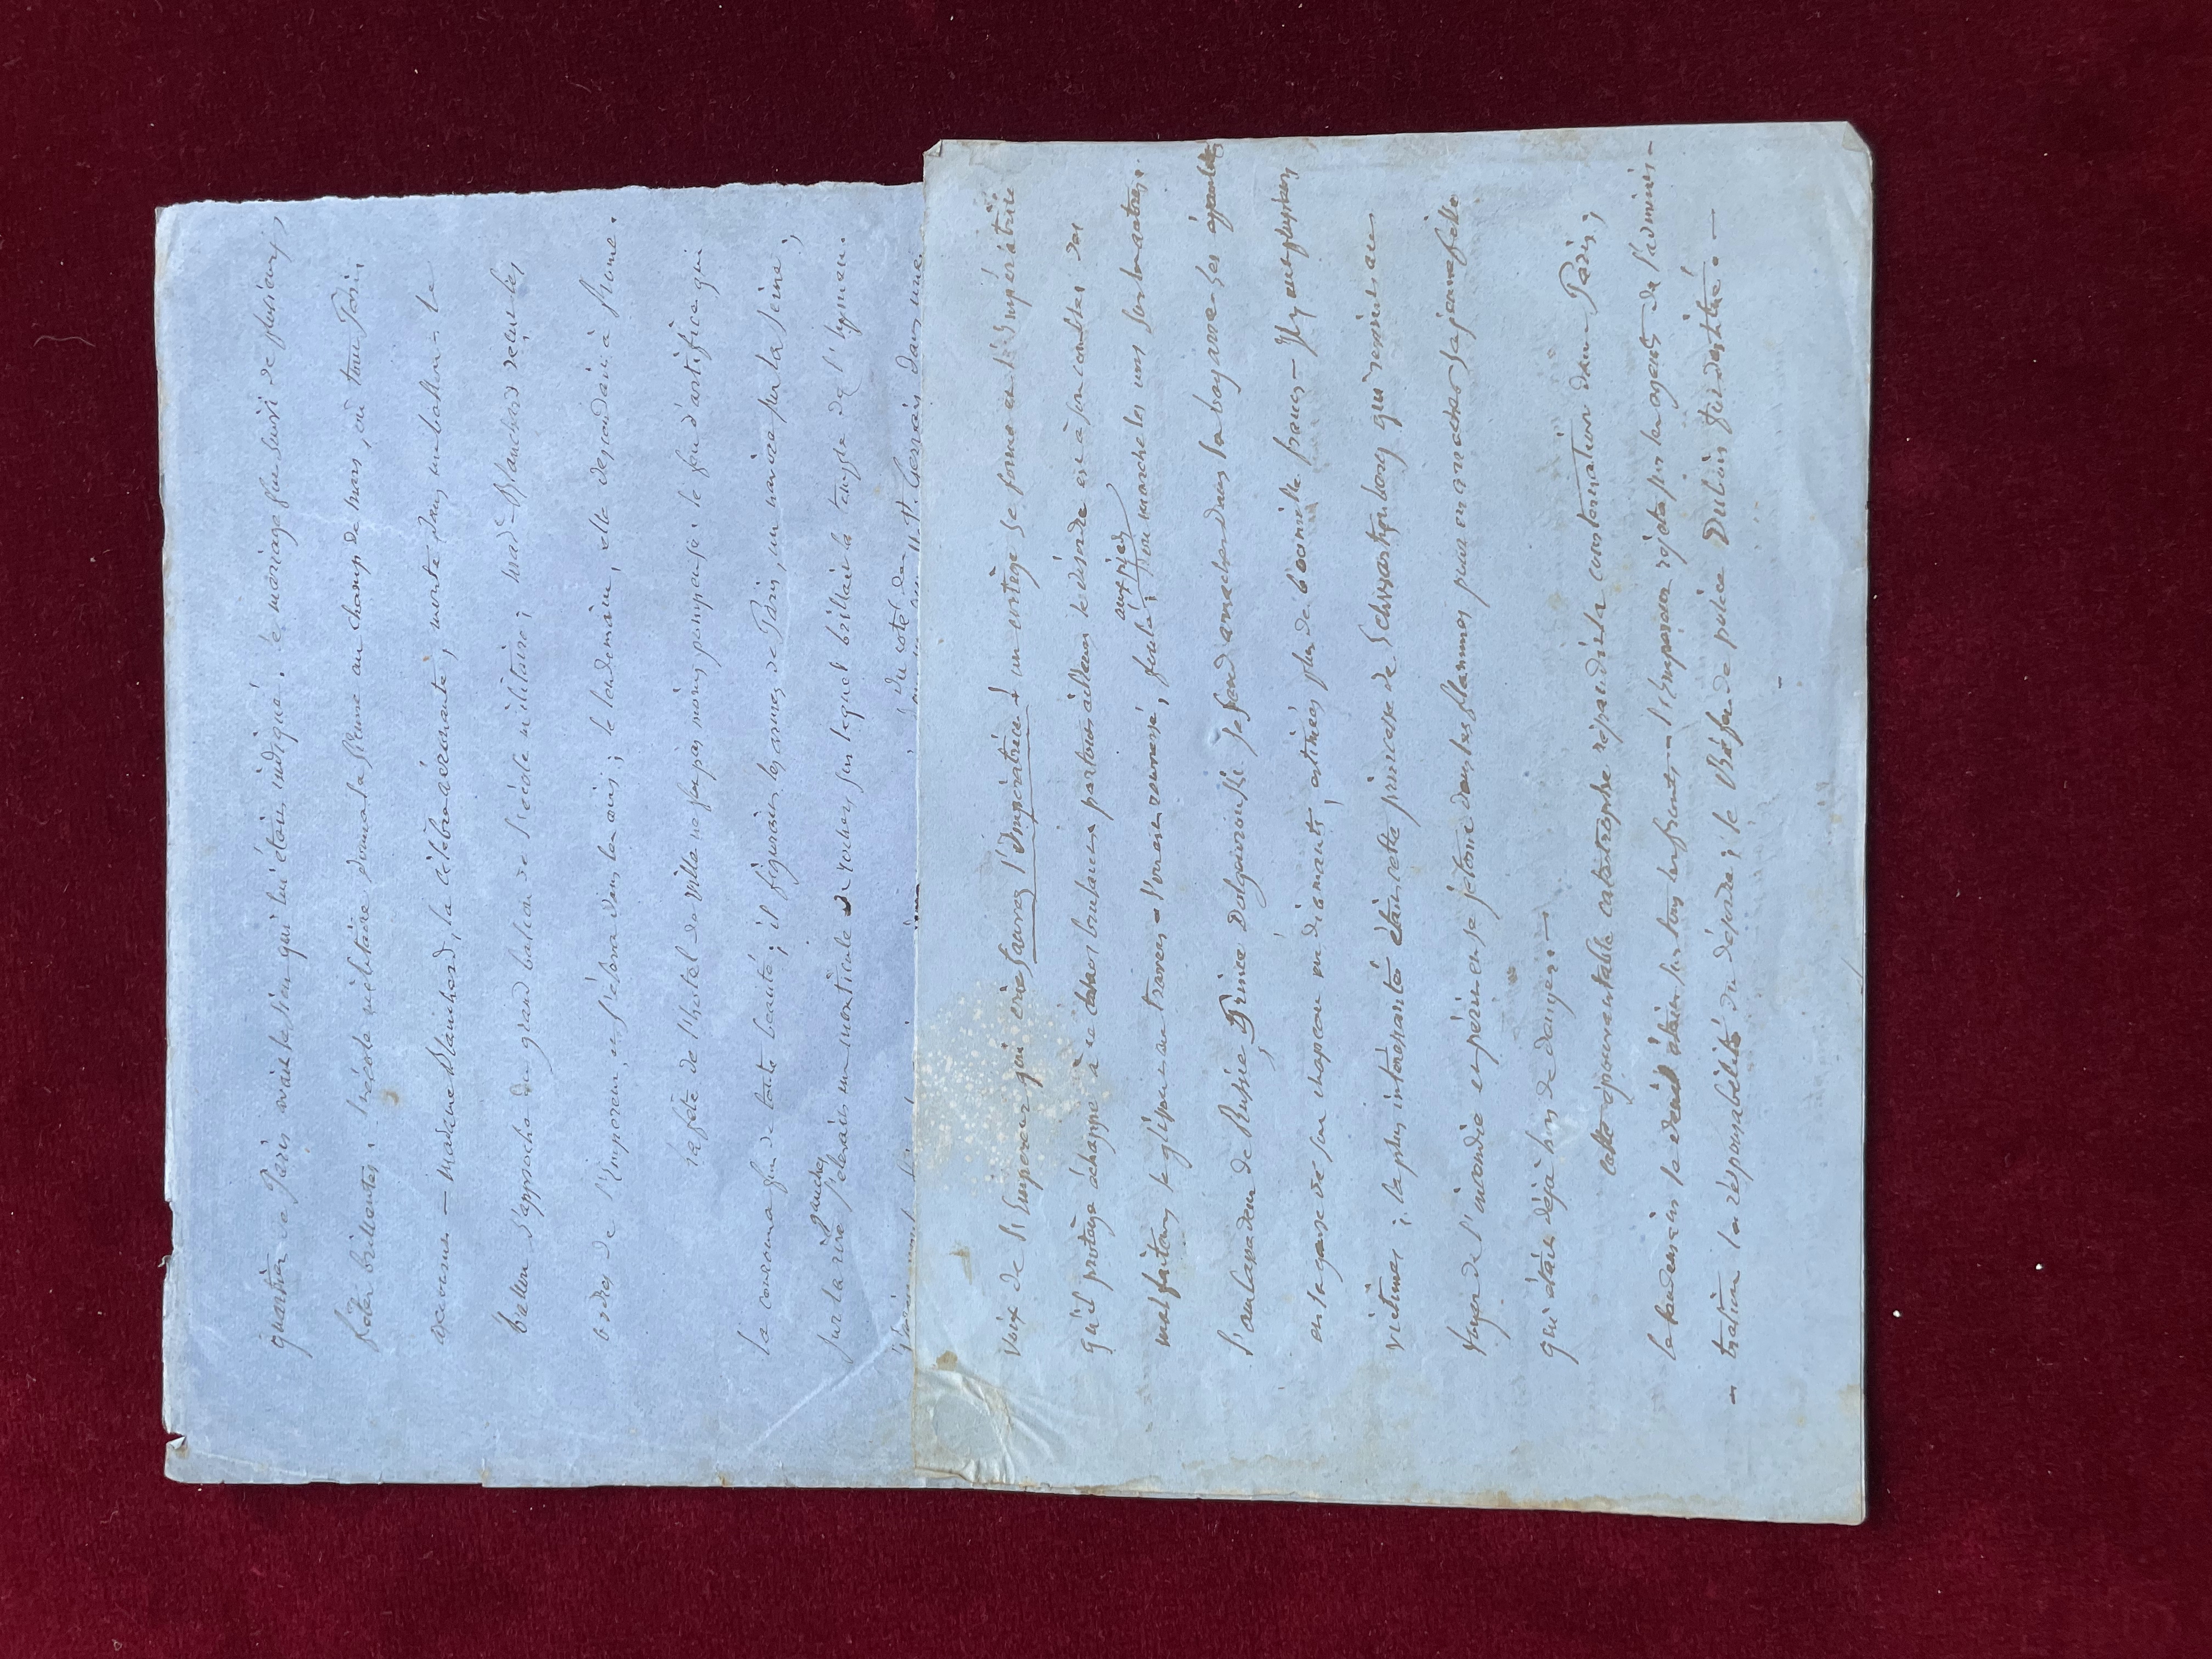 quartier de Paris avait le sien qui lui était indiqué. Le mariage fut suivi de plusieurs
fêtes brillantes; l'école militaire donna la sienne au champ de mars, où tout Paris
accourut — madame Blanchard, la célèbre aéronaute, montée dans un ballon; le
ballon s'approcha du grand balcon de l'école militaire; mad. Blanchard reçut les
ordres de l'Empereur et s'éleva dans les airs; le lendemain, elle descendait à
la fête de l'hôtel de ville ne fut pas moins pompeuse; le feu d'artifice qui
la couronna fut de toute beauté; il figurait les armes de Paris, un navire sur la Seine;
sur la rive gauche s'élevait un monticule de rochers sur lequel brillait le temple de l'hymen.
du côté de St. Gervais dans une
voix de l'Empereur qui crie sauvez l'Impératrice! un cortège se forme et l'Impératrice
qu'il protège échappe à ce chaos bruyant partout ailleurs le désordre est à son comble; des
malfaiteurs se glissent au travers — l'on est renversé, foulé aux pieds; l'on marche les uns sur les autres.
l'ambassadeur de Russie, Prince Dolgorouski se fond arracher dans la bagarre ses épaulettes
et la ganse de son chapeau en diamants, estimées plus de 600 mille francs — Il y eut plusieurs
victimes; la plus intéressante était cette princesse de Schwartzenberg qui revint au
foyer de l'incendie et périt en se jetant dans les flammes pour en arracher sa jeune fille
qui était déjà hors de danger. —
Cette épouvantable catastrophe répandit la consternation dans Paris;
le lendemain le deuil était sur tous les fronts — l'Empereur rejeta sur les agents de l'adminis-
- tration la responsabilité du désordre; le Préfet de police Dubois fut destitué. —